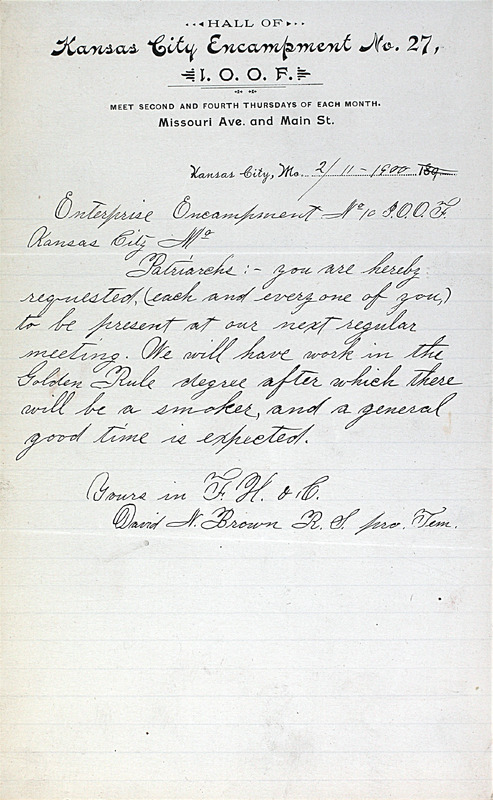 HALL OF
Kansas City Encampment No. 27,
I. O. O. F.
MEET SECOND AND FOURTH THURSDAYS OF EACH MONTH.
Missouri Ave. and Main St.
Kansas City, Mo. 2/11-1900 189
Enterprise Encampment No 10 I.O.O.F.
Kansas City Mo
Patriarchs :- you are hereby
requested, (each and every one of you,)
to be present at our next regular
meeting. We will have work in the
Golden Rule degree after which there
will be a smoker, and a general
good time is expected.
Yours in F. H. & C.
David N. Brown R. S. pro. Tem.